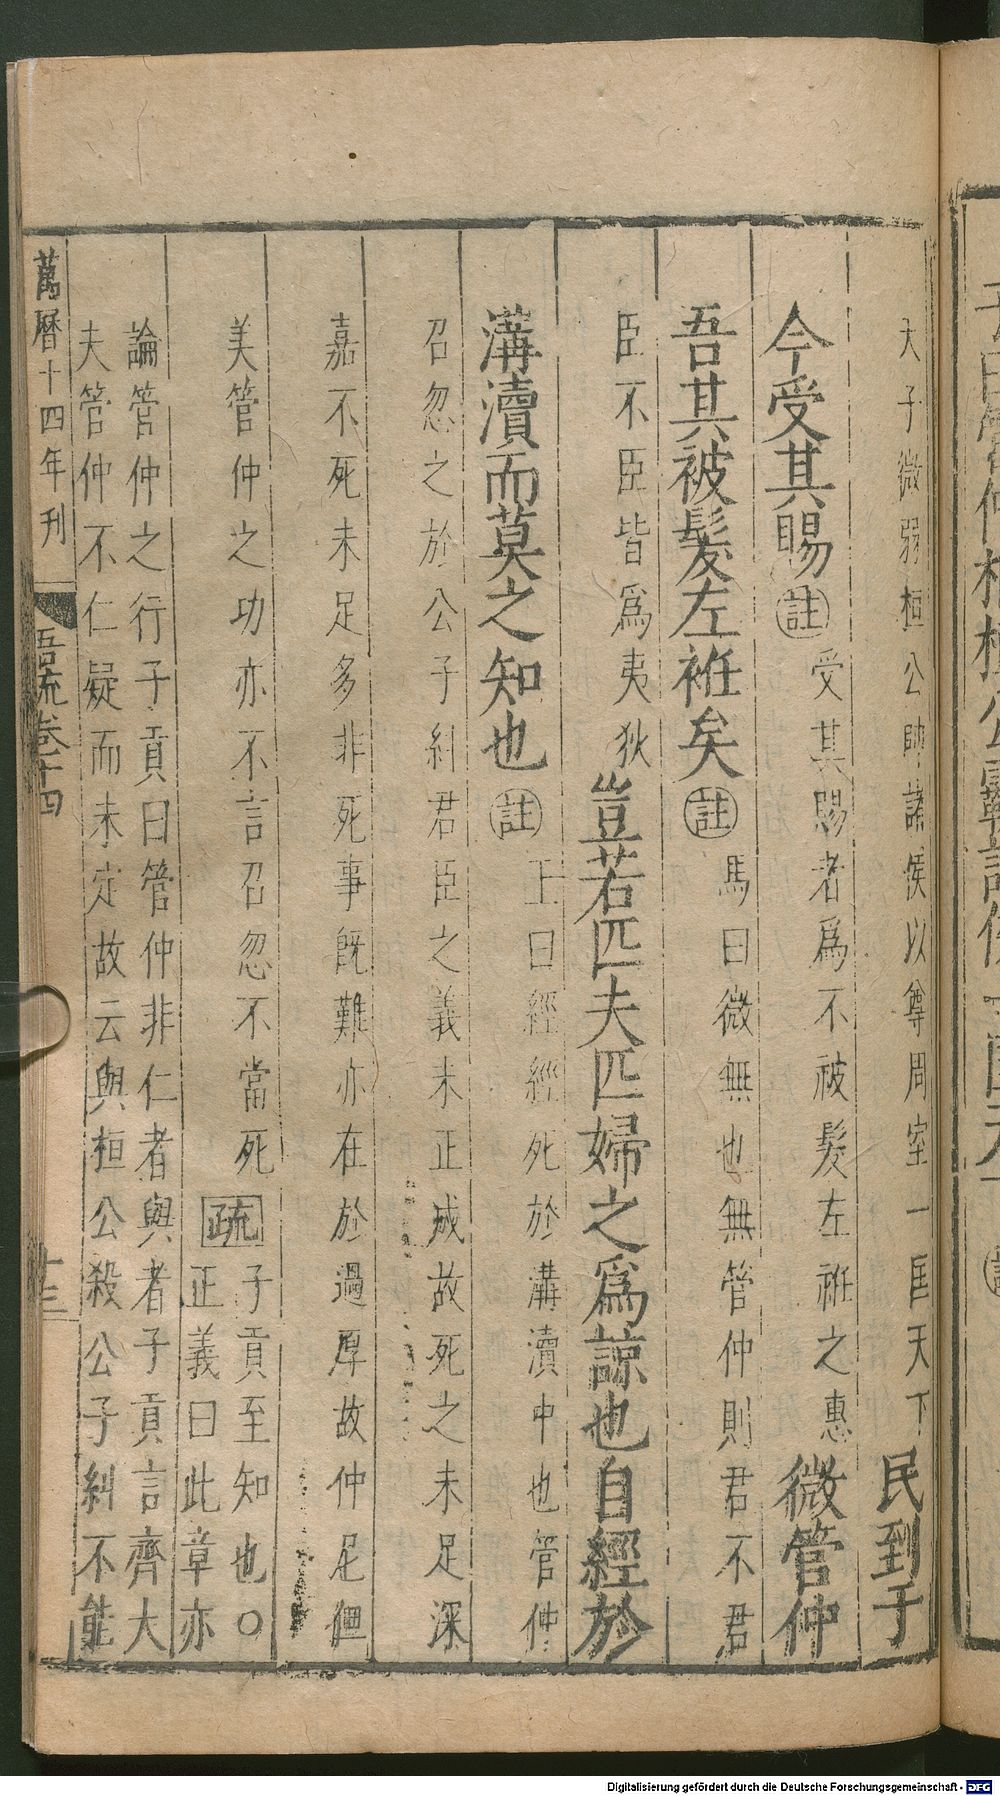 天子微弱桓公帥諸侯以尊周室一匡天下民到于
今受其賜註受其賜者爲不被髮左袵之惠微管仲
吾其被髮左袵矣註馬曰微無也無管仲則君不君
臣不臣皆爲夷狄豈若匹夫匹婦之爲諒也自經於
溝瀆而莫之知也註王曰經經死於溝瀆中也管仲
召忽之於公子糾君臣之義未正成故死之未足深
嘉不死未足多非死事既難亦在於過厚故仲尼但
美管仲之功亦不言召忽不當死疏子貢至知也○
正義曰此章亦
論管仲之行子貢曰管仲非仁者與者子貢言齊大
夫管仲不仁疑而未定故云與桓公殺公子糾不能
萬曆十四年刊
吾流卷十四
十三
Digitalisierung gefördert durch die Deutsche Forschungsgemeinschaft - DFG